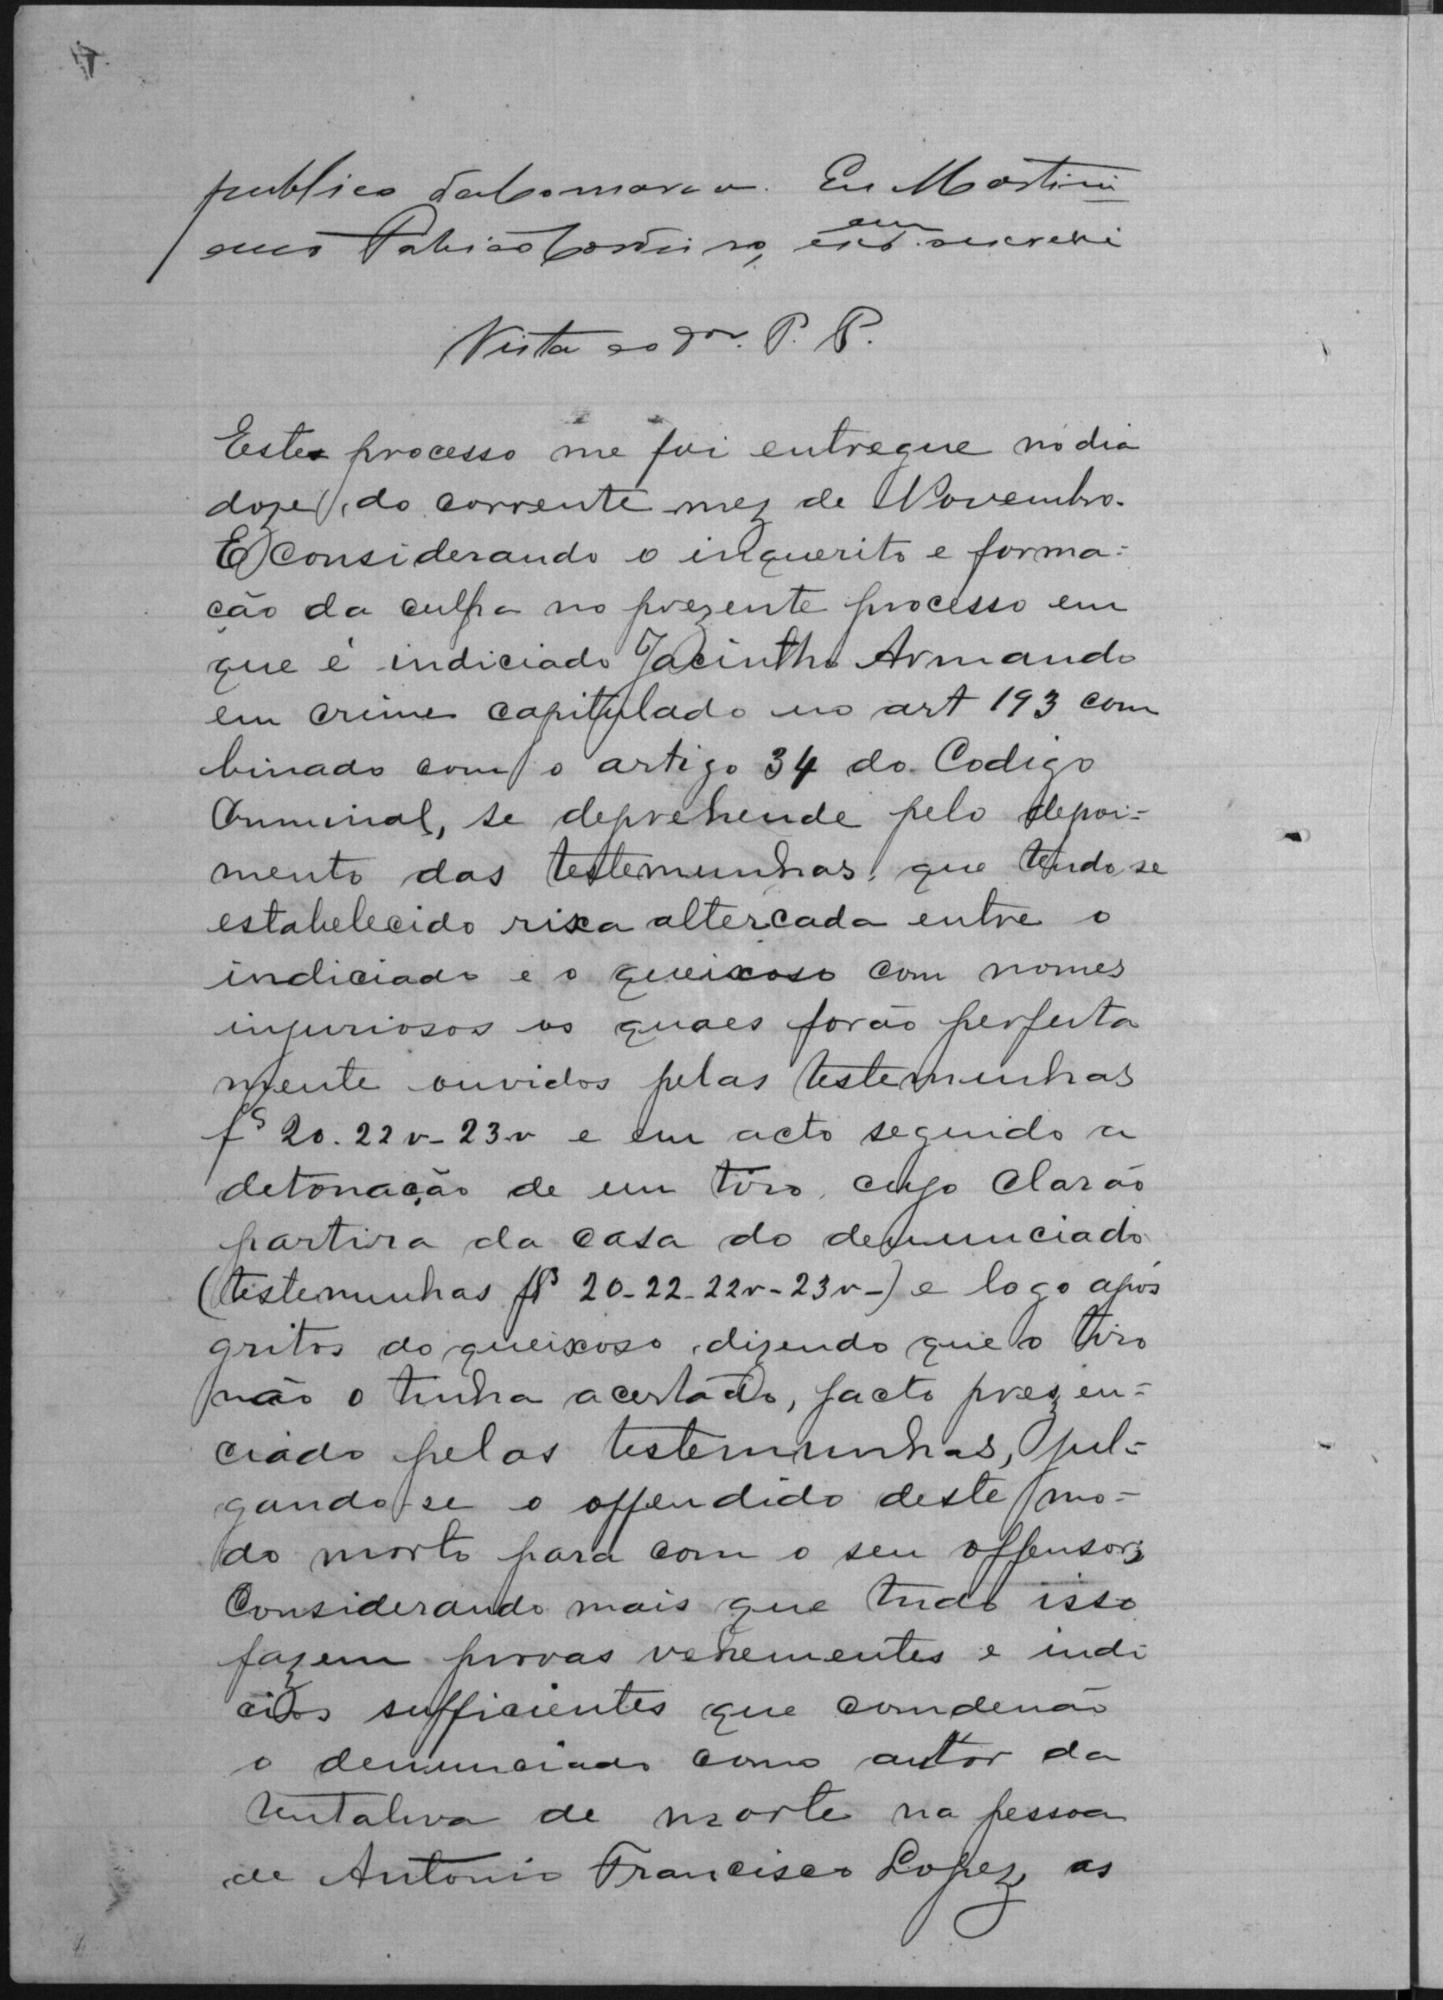 publico da Comarca. Eu Martini
ano Cordeiro, escrevi
Vista ao Dor. P. P.
Este processo me foi entregue no dia
doze, do corrente mez de Novembro.
E considerando o inquerito e forma=
ção da culpa no prezente processo em
que é indiciado Jacintho Armando
em crime capitulado no art 193 com
binado com o artigo 34 do Codigo
Criminal, se deprehende pelo depoi=
mento das testemunhas, que tendo se
estabelecido rixa altercada entre o
indiciado e o queixoso com nomes
injuriosos os quaes forão perfeita
mente ouvidos pelas testemunhas
fs 20. 22 v- 23 v e em acto seguido a
detonação de um tiro, cujo clarão
partira da casa do denunciado
(testemunhas fls 20-22-22v-23v-) e logo após
gritos do queixoso, dizendo que o tiro
não o tinha acertado, facto prezen=
ciado pelas testemunhas, jul=
gando-se o offendido deste mo=
do morto para com o seu offensor;
Considerando mais que tudo isso
fazem provas vehementes e indi
cios sufficientes que condenão
o denunciado como autor da
tentativa de morte na pessoa
de Antonio Francisco Lopez, as